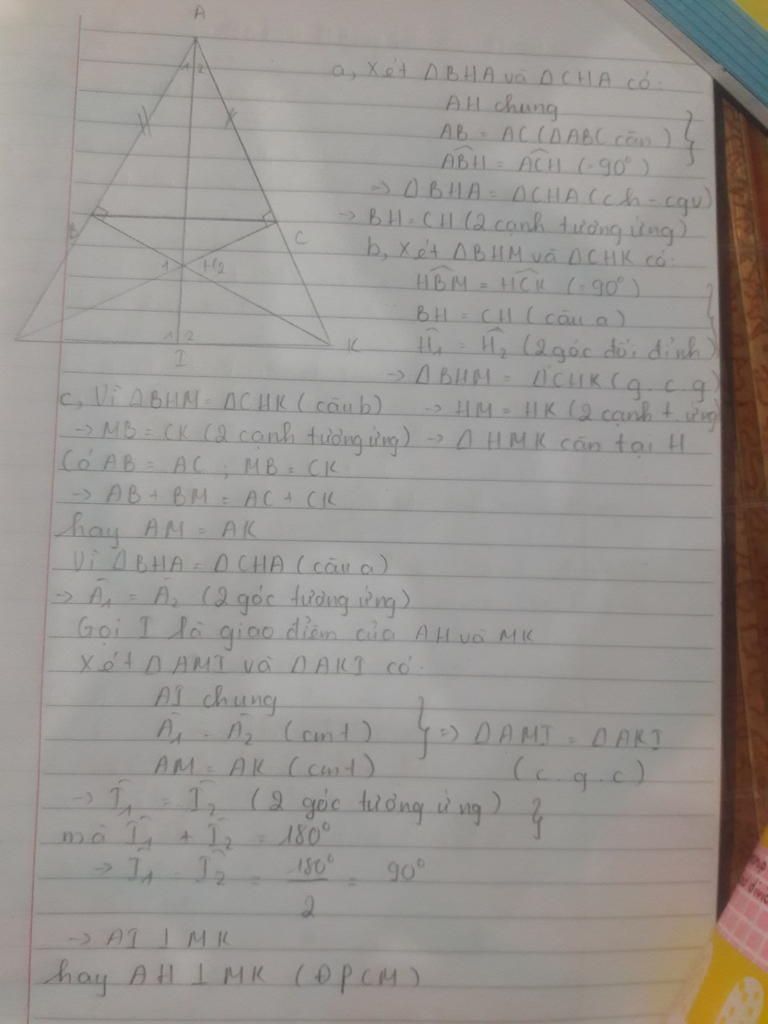 A
1 2
B
C
1 H 2
1 2
I
K
a, Xét ΔBHA và ΔCHA có:
AH chung
AB = AC (ΔABC cân)
ABH = ACH (=90°)
→ ΔBHA = ΔCHA (ch - cgv)
→ BH = CH (2 cạnh tương ứng)
b, Xét ΔBHM và ΔCHK có:
HBM = HCK (=90°)
BH = CH (câu a)
H1 = H2 (2 góc đối đỉnh)
→ ΔBHM = ΔCHK (g.c.g)
c, Vì ΔBHM = ΔCHK (câu b) → HM = HK (2 cạnh t. ứng)
→ MB = CK (2 cạnh tương ứng) → Δ HMK cân tại H
Có AB = AC ; MB = CK
→ AB + BM = AC + CK
hay AM = AK
Vì ΔBHA = ΔCHA (câu a)
→ A1 = A2 (2 góc tương ứng)
Gọi I là giao điểm của AH và MK
Xét ΔAMI và ΔAKI có:
AI chung
A1 = A2 (cmt) } => ΔAMI = ΔAKI
AM = AK (cmt) (c.g.c)
→ I1 = I2 (2 góc tương ứng) }
mà I1 + I2 = 180°
→ I1 = I2 = 180°/2 = 90°
→ AI ⊥ MK
hay AH ⊥ MK (ĐPCM)